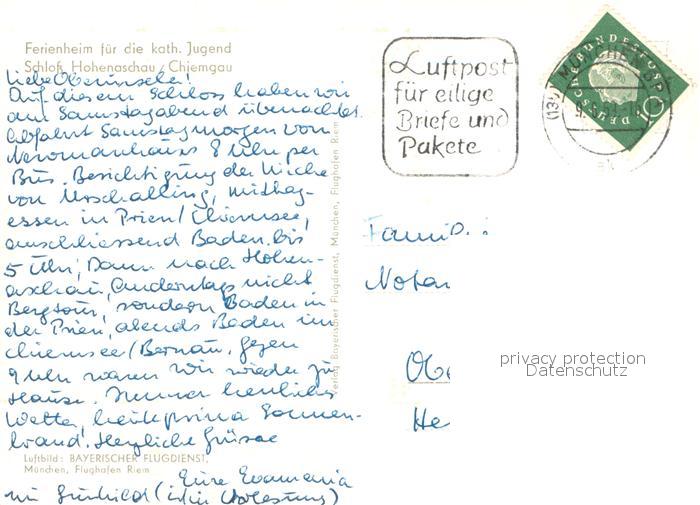 Ferienheim für die kath. Jugend
Schloß Hohenaschau / Chiemgau
Liebe Oberinseler!
Auf diesem Schloss haben wir
am Samstagabend übernachtet.
Abfahrt Samstagmorgen vom
Newmanhaus 8 Uhr per
Bus. Besichtigung der Kirche
von Urschalling, Mittag-
essen in Prien/Chiemsee,
anschliessend Baden bis
5 Uhr; Dann nach Hohen-
aschau, anderntags nicht
Bergtour, sondern Baden in
der Prien, abends Baden im
Chiemsee/Bernau. gegen
9 Uhr waren wir wieder zu
Hause. Immer herrliches
Wetter, heute prima Sonnen-
brand! Herzliche Grüsse
Luftbild: BAYERISCHER FLUGDIENST,
München, Flughafen Riem
Eure Evamaria
mit (in der Vorlesung)
Verlag Bayerischer Flugdienst, München, Flughafen Riem
Luftpost
für eilige
Briefe und
Pakete
MÜNCHEN
DEUTSCHE BUNDESPOST
10
Famil
Notar
Ob
He
privacy protection
Datenschutz